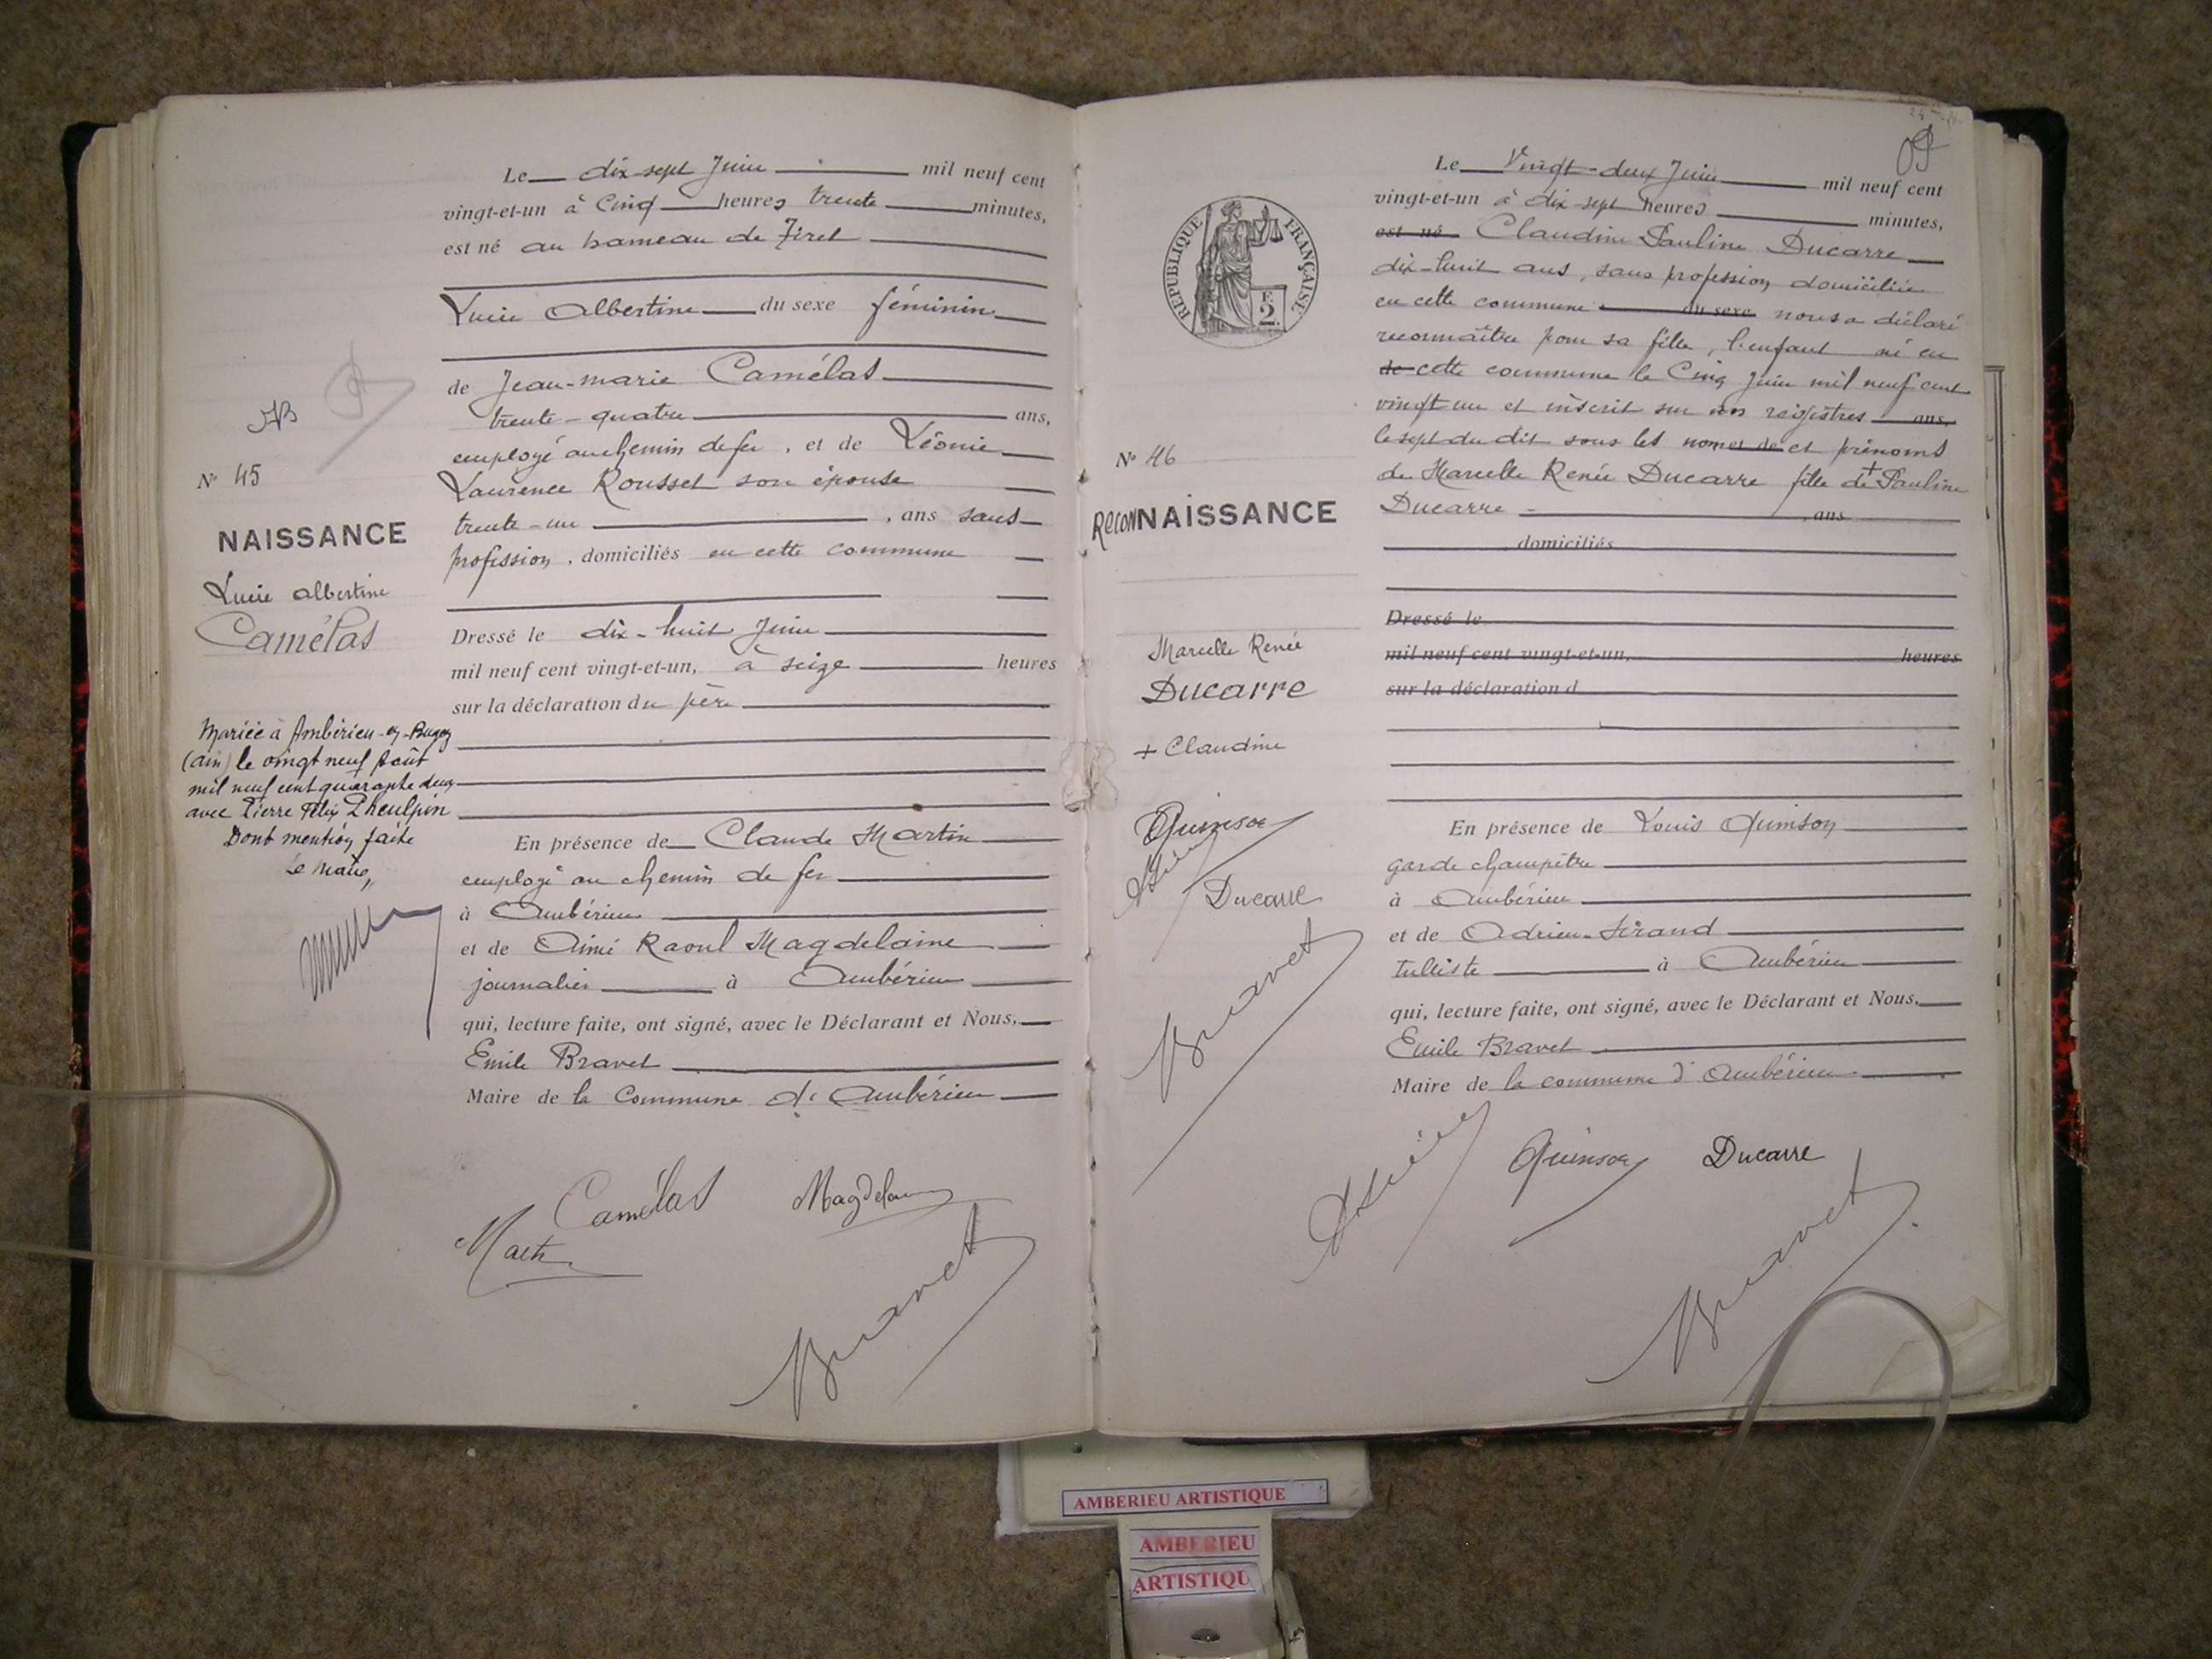 Le dix-sept Juin mil neuf cent
vingt-et-un à Cinq heures trente minutes,
est né au hameau de Tiret
Lucie Albertine du sexe féminin
de Jean-Marie Camélas
trente-quatre ans,
employé au chemin de fer, et de Léonie
Laurence Rousset son épouse
trente-un, ans sans
profession, domiciliés en cette commune
Dressé le dix-huit Juin
mil neuf cent vingt-et-un, à seize heures
sur la déclaration du père
En présence de Claude Martin
employé au chemin de fer
à Ambérieu
et de Aimé Raoul Magdelaine
journalier à Ambérieu
qui, lecture faite, ont signé, avec le Déclarant et Nous,
Emile Bravet
Maire de la Commune d'Ambérieu
Camélas Magdelaine
Martin
Bravet
N° 45
NAISSANCE
Lucie Albertine
Camélas
Mariée à Ambérieu-en-Bugey
(Ain) le vingt neuf Août
mil neuf cent quarante deux
avec Pierre Félix Pheulpin
Dont mention faite
Le Maire,
Le Vingt-deux Juin mil neuf cent
vingt-et-un à dix-sept heures minutes,
est né Claudine Pauline Ducarre
dix-huit ans, sans profession domiciliée
en cette commune du sexe nous a déclaré
reconnaître pour sa fille, l'enfant né en
de cette commune le Cinq Juin mil neuf cent
vingt un et inscrit sur nos registres ans,
le sept du dit sous les noms et de et prénoms
de Marcelle Renée Ducarre fille de + Pauline
Ducarre , ans
domiciliés
Dressé le
mil neuf cent vingt-et-un, heures
sur la déclaration d
En présence de Louis Quinson
garde champêtre
à Ambérieu
et de Adrien Sirand
tulliste à Ambérieu
qui, lecture faite, ont signé, avec le Déclarant et Nous,
Emile Bravet
Maire de la commune d'Ambérieu
Quinson Ducarre
Bravet
REPUBLIQUE FRANÇAISE
F.
2
N° 46
RECONNAISSANCE
Marcelle Renée
Ducarre
+ Claudine
Quinson
Ducarre
Bravet
AMBERIEU ARTISTIQUE
AMBERIEU
ARTISTIQU